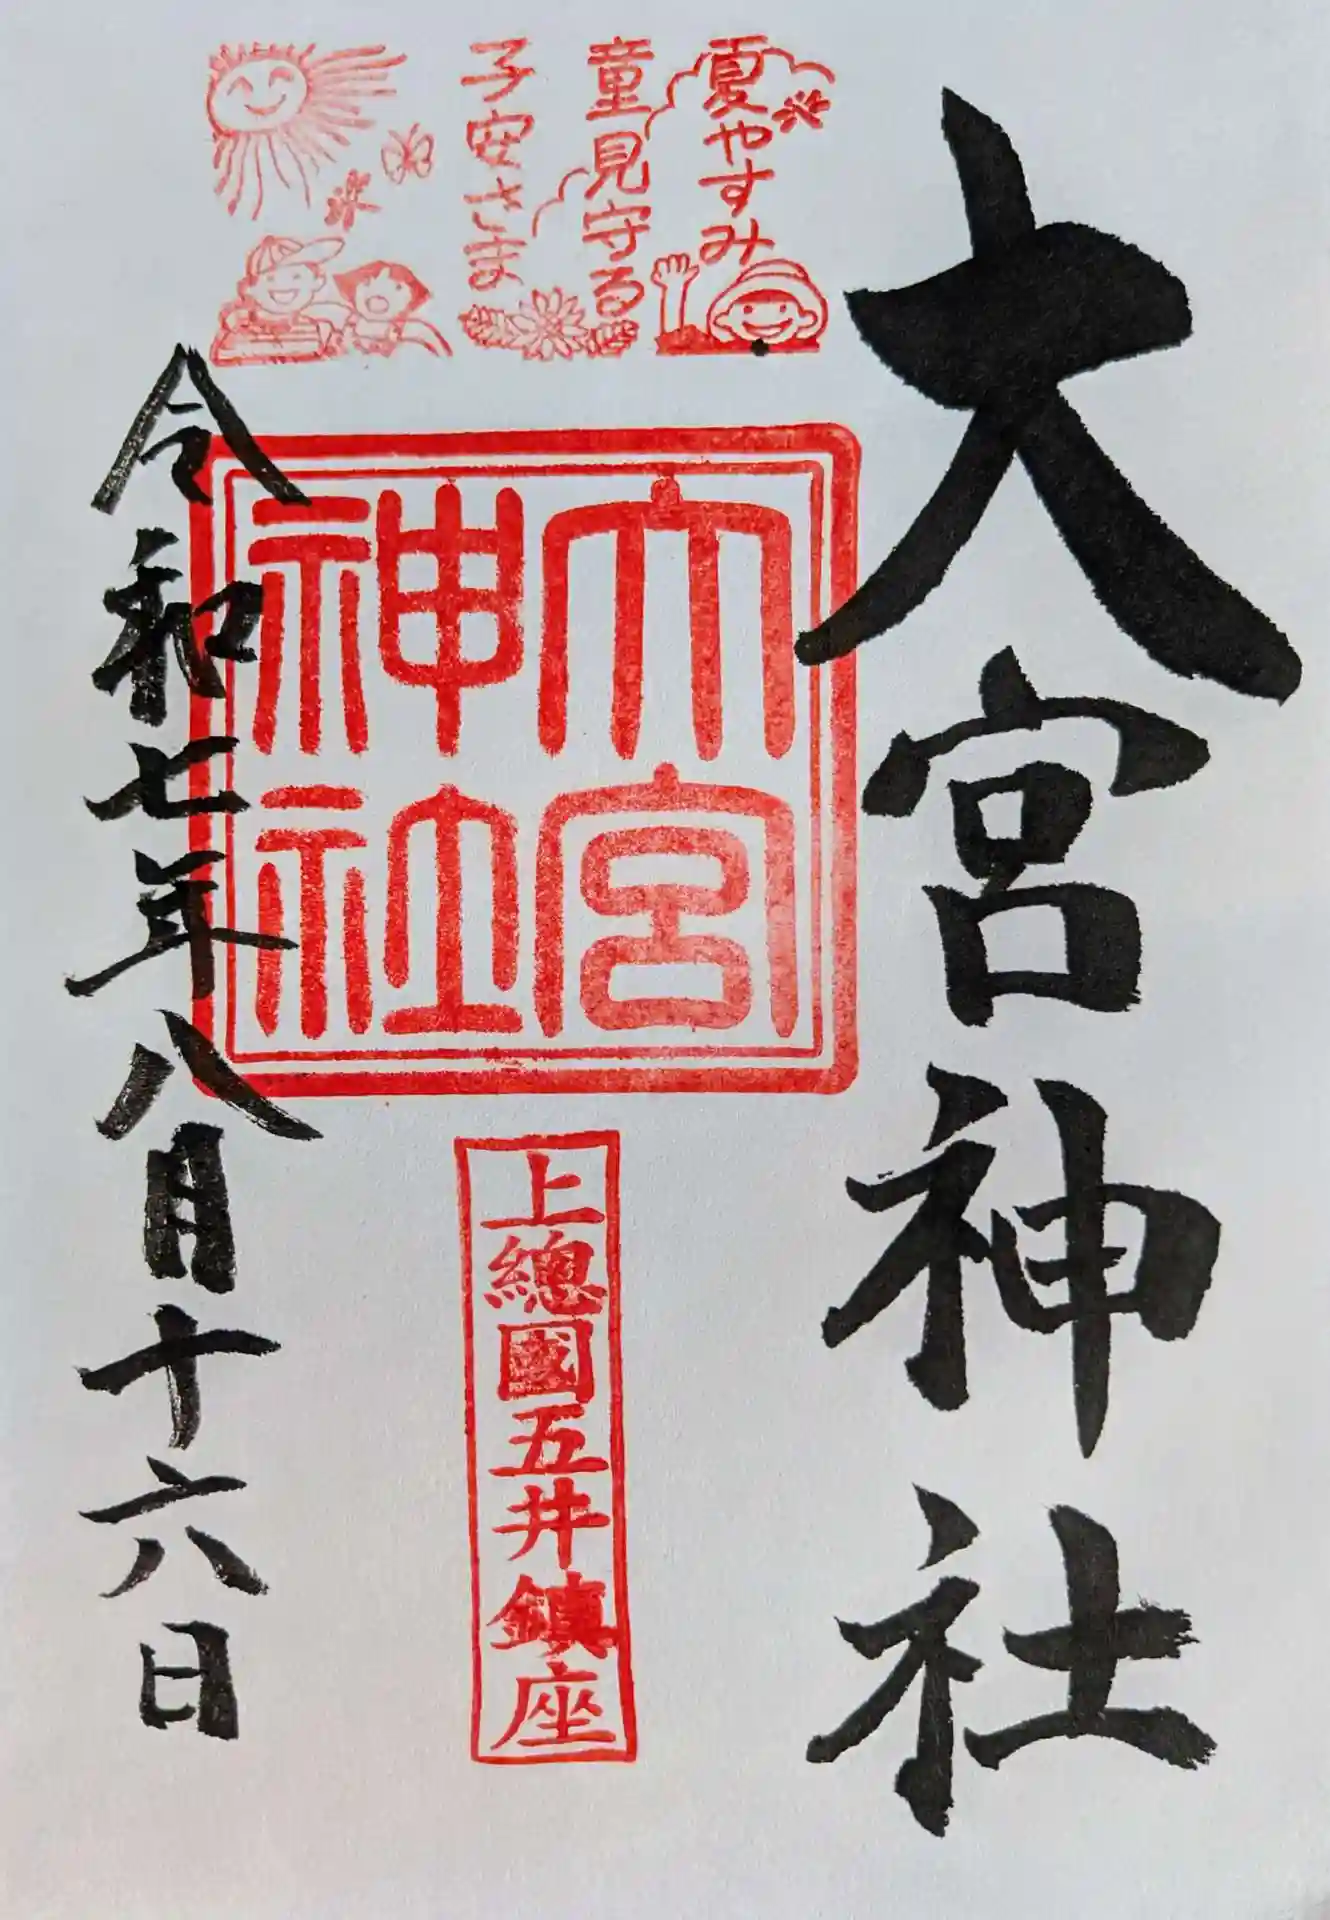 大宮神社
夏やすみ
童見守る
子安さま
大宮
神社
上總國五井鎮座
令和七年八月十六日